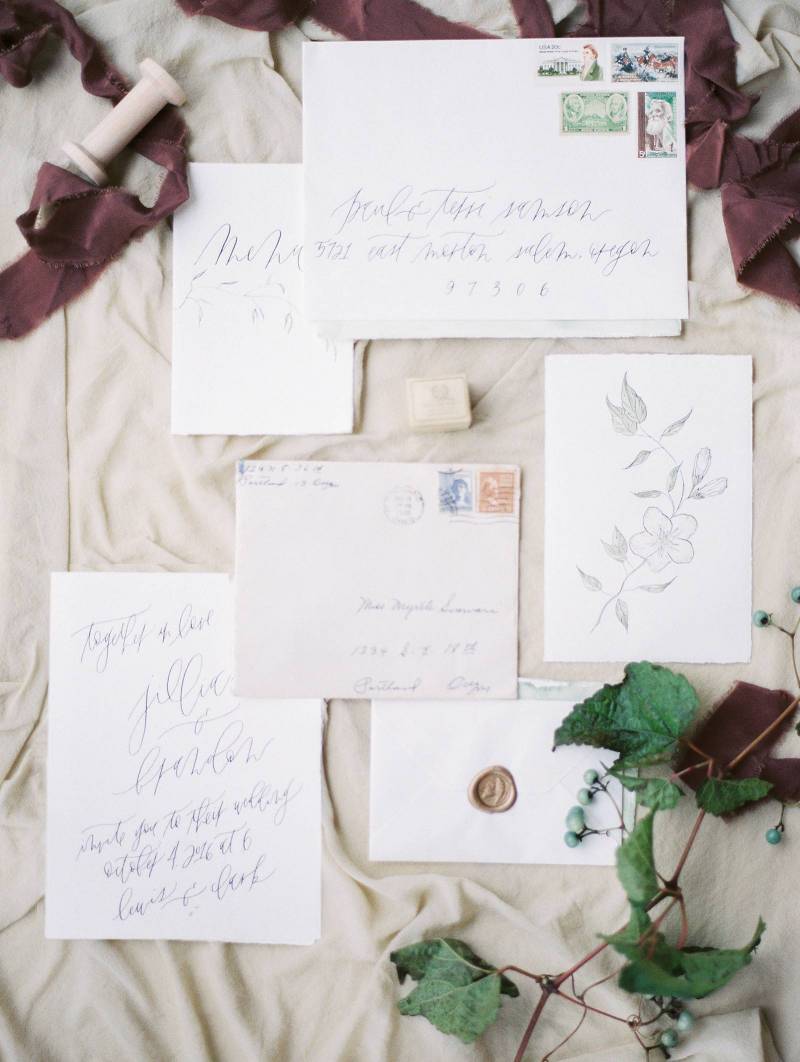 USA 20c
paul & terri samson
5721 east morton salem, oregon
97306
menu
Portland 13 Oreg
Miss Myrtle
1234 S.E 18th
Portland Oreg
together in love
jillie
&
brandon
invite you to their wedding
october 4 2016 at 6
lewis & clark